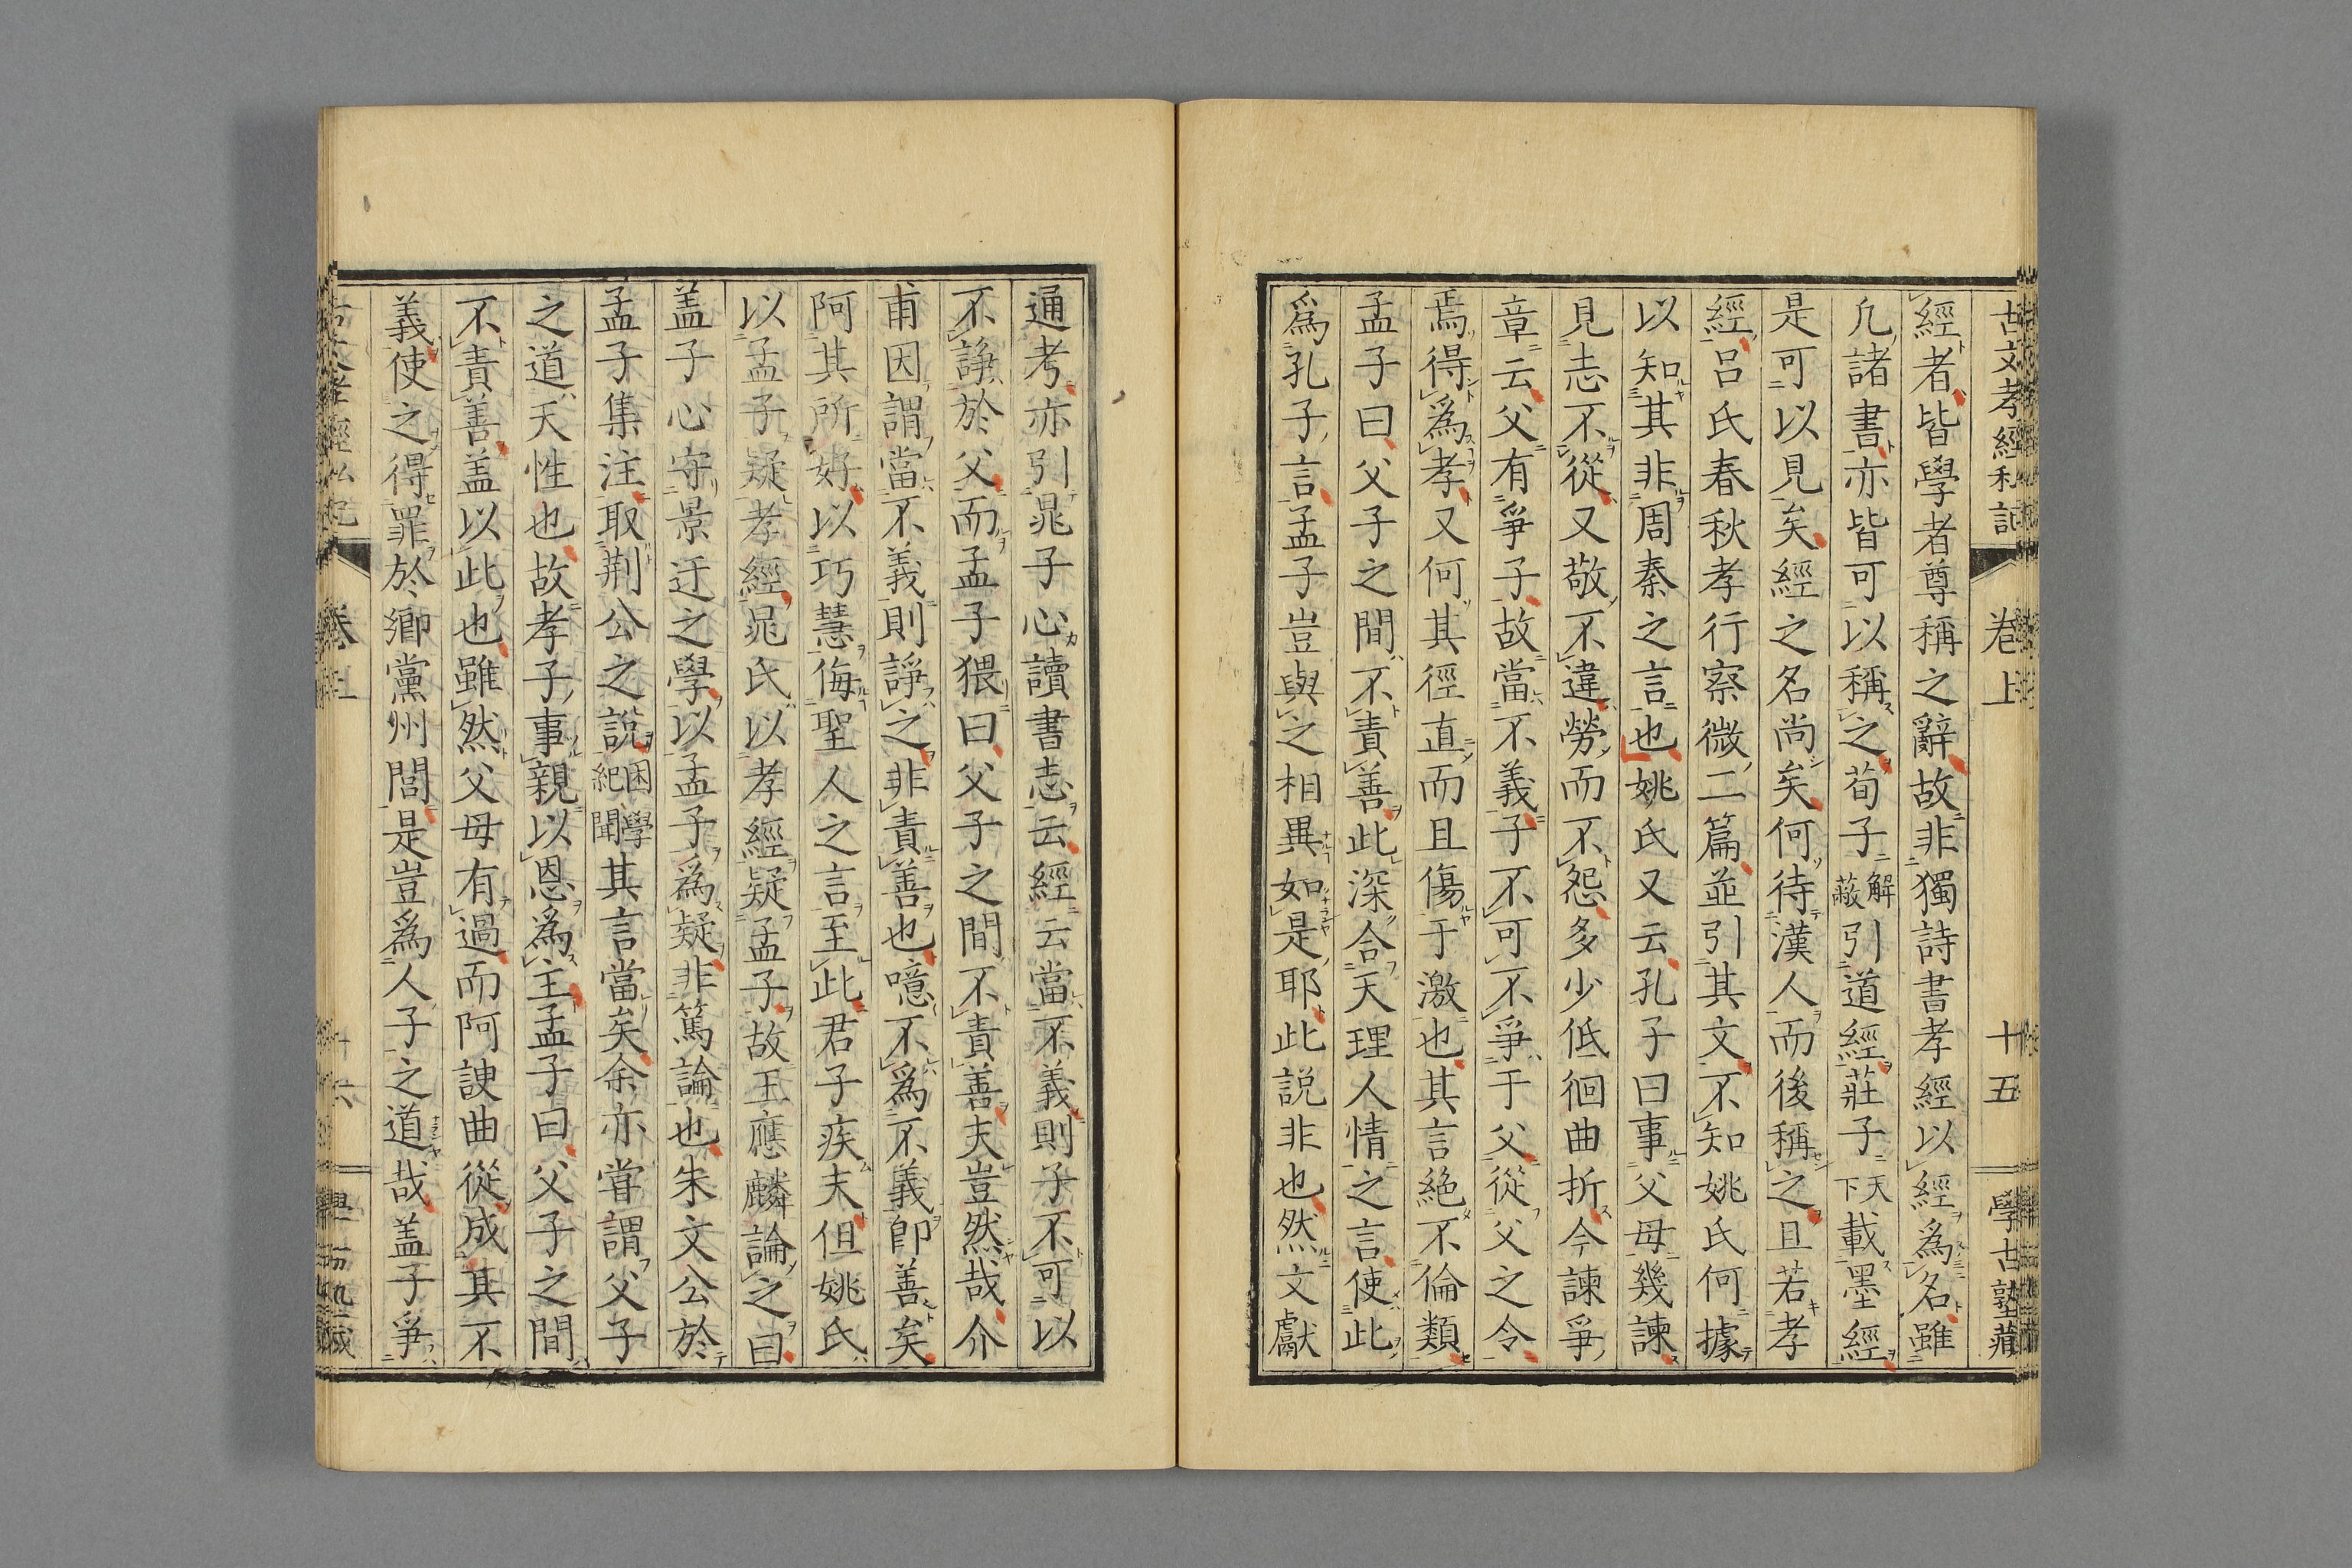 古文孝經私記 卷上 十五 學古塾藏
經者皆學者尊稱之辭故非獨詩書孝經以經爲名雖
凡諸書亦皆可以稱之荀子解蔽引道經莊子天下載墨經
是可以見矣經之名尚矣何待漢人而後稱之且若孝
經呂氏春秋孝行察微二篇並引其文不知姚氏何據
以知其非周秦之言也姚氏又云孔子曰事父母幾諫
見志不從又敬不違勞而不怨多少低徊曲折今諫爭
章云父有爭子故當不義子不可不爭于父從父之令
焉得爲孝又何其徑直而且傷于激也其言絶不倫類
孟子曰父子之間不責善此深合天理人情之言使此
爲孔子言孟子豈與之相異如是耶此說非也然文獻
通考亦引晁子心讀書志云經云當不義則子不可以
不諍於父而孟子猥曰父子之間不責善夫豈然哉介
甫因謂當不義則諍之非責善也噫不爲不義即善矣
阿其所好以巧慧侮聖人之言至此君子疾夫但姚氏
以孟子疑孝經晁氏以孝經疑孟子故王應麟論之曰
盖子心守景迂之學以孟子爲疑非篤論也朱文公於
孟子集注取荆公之說困學紀聞其言當矣余亦嘗謂父子
之道天性也故孝子事親以恩爲主孟子曰父子之間
不責善盖以此也雖然父母有過而阿諛曲從成其不
義使之得罪於鄉黨州閭是豈爲人子之道哉盖子爭